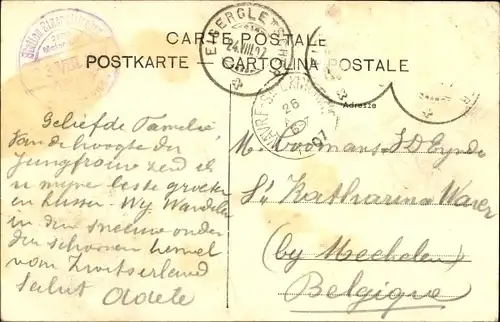 CARTE POSTALE
POSTKARTE — CARTOLINA POSTALE
EIGERGLETSCHER
24.VIII.07
WAVRE-Ste-CATHERINE
26
07
Adresse
Geliefde Familie,
Van de hoogte der
Jungfrau zend ik
u mijne beste groeten
en kussen. Wij wandelen
in den sneeuw onder
den schoonen hemel
van Zwitserland
Salut Adele
Ste Katharina Waver
(by Mechelen)
Belgique